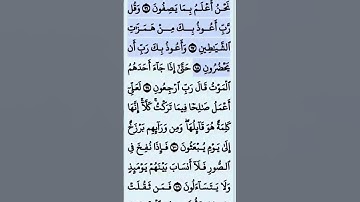 نَحْنُ أَعْلَمُ بِمَا يَصِفُونَ ۝ وَقُل
رَّبِّ أَعُوذُ بِكَ مِنْ هَمَزَٰتِ
ٱلشَّيَٰطِينِ ۝ وَأَعُوذُ بِكَ رَبِّ أَن
يَحْضُرُونِ ۝ حَتَّىٰٓ إِذَا جَآءَ أَحَدَهُمُ
ٱلْمَوْتُ قَالَ رَبِّ ٱرْجِعُونِ ۝ لَعَلِّيٓ
أَعْمَلُ صَٰلِحًا فِيمَا تَرَكْتُ ۚ كَلَّآ ۚ إِنَّهَا
كَلِمَةٌ هُوَ قَآئِلُهَا ۖ وَمِن وَرَآئِهِم بَرْزَخٌ
إِلَىٰ يَوْمِ يُبْعَثُونَ ۝ فَإِذَا نُفِخَ فِي
ٱلصُّورِ فَلَآ أَنسَابَ بَيْنَهُمْ يَوْمَئِذٍ
وَلَا يَتَسَآءَلُونَ ۝ فَمَن ثَقُلَتْ